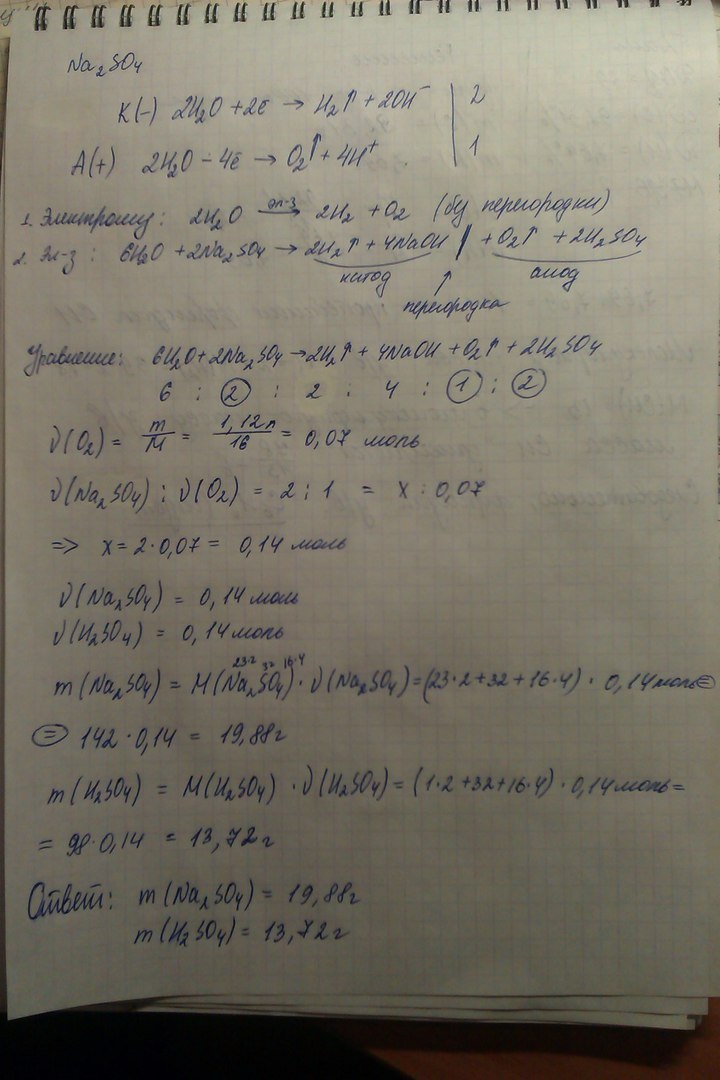 Na₂SO₄
K(-) 2H₂O + 2ē → H₂↑ + 2OH⁻ | 2
A(+) 2H₂O - 4ē → O₂↑ + 4H⁺ | 1
1. Электролиз: 2H₂O →(эл-з) 2H₂ + O₂ (без перегородки)
2. Эл-з: 6H₂O + 2Na₂SO₄ → 2H₂↑ + 4NaOH | + O₂↑ + 2H₂SO₄
катод ↑ анод
перегородка
Уравнение: 6H₂O + 2Na₂SO₄ → 2H₂↑ + 4NaOH + O₂↑ + 2H₂SO₄
6 : 2 : 2 : 4 : 1 : 2
ν(O₂) = m/M = 1,12л/16 = 0,07 моль
ν(Na₂SO₄) : ν(O₂) = 2 : 1 = x : 0,07
=> x = 2·0,07 = 0,14 моль
ν(Na₂SO₄) = 0,14 моль
ν(H₂SO₄) = 0,14 моль
23·2 32 16·4
m(Na₂SO₄) = M(Na₂SO₄) · ν(Na₂SO₄) = (23·2+32+16·4) · 0,14 моль =
= 142·0,14 = 19,88г
m(H₂SO₄) = M(H₂SO₄) · ν(H₂SO₄) = (1·2+32+16·4) · 0,14 моль =
= 98·0,14 = 13,72г
Ответ: m(Na₂SO₄) = 19,88г
m(H₂SO₄) = 13,72г